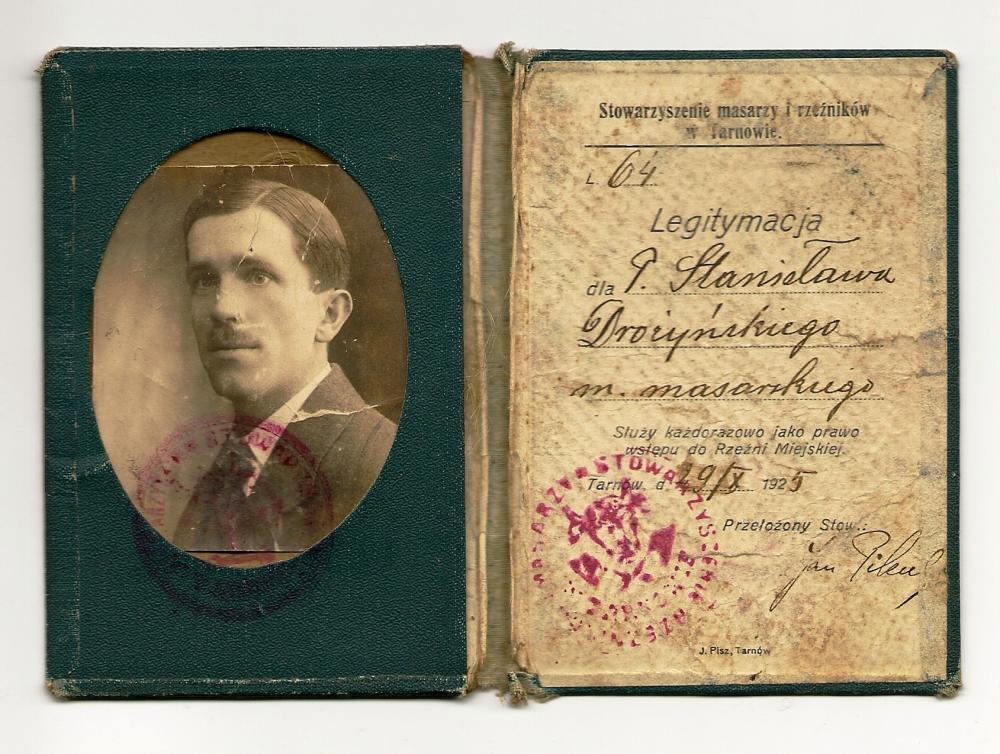 Stowarzyszenie masarzy i rzeźników
w Tarnowie.
L. 64
Legitymacja
dla P. Stanisława
Drożyńskiego
m. masarskiego
Służy każdorazowo jako prawo
wstępu do Rzeźni Miejskiej.
Tarnów, d. 29/X 1925
Przełożony Stow.:
Jan
J. Pisz, Tarnów